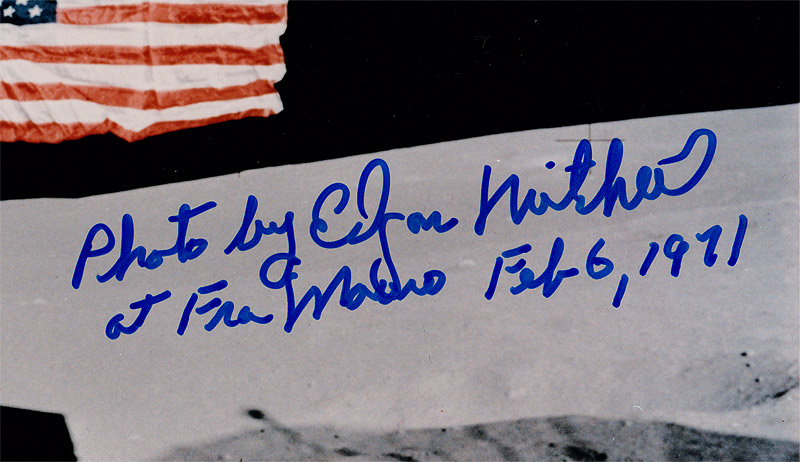 Photo by Edgar Mitchell
at Fra Mauro Feb 6, 1971